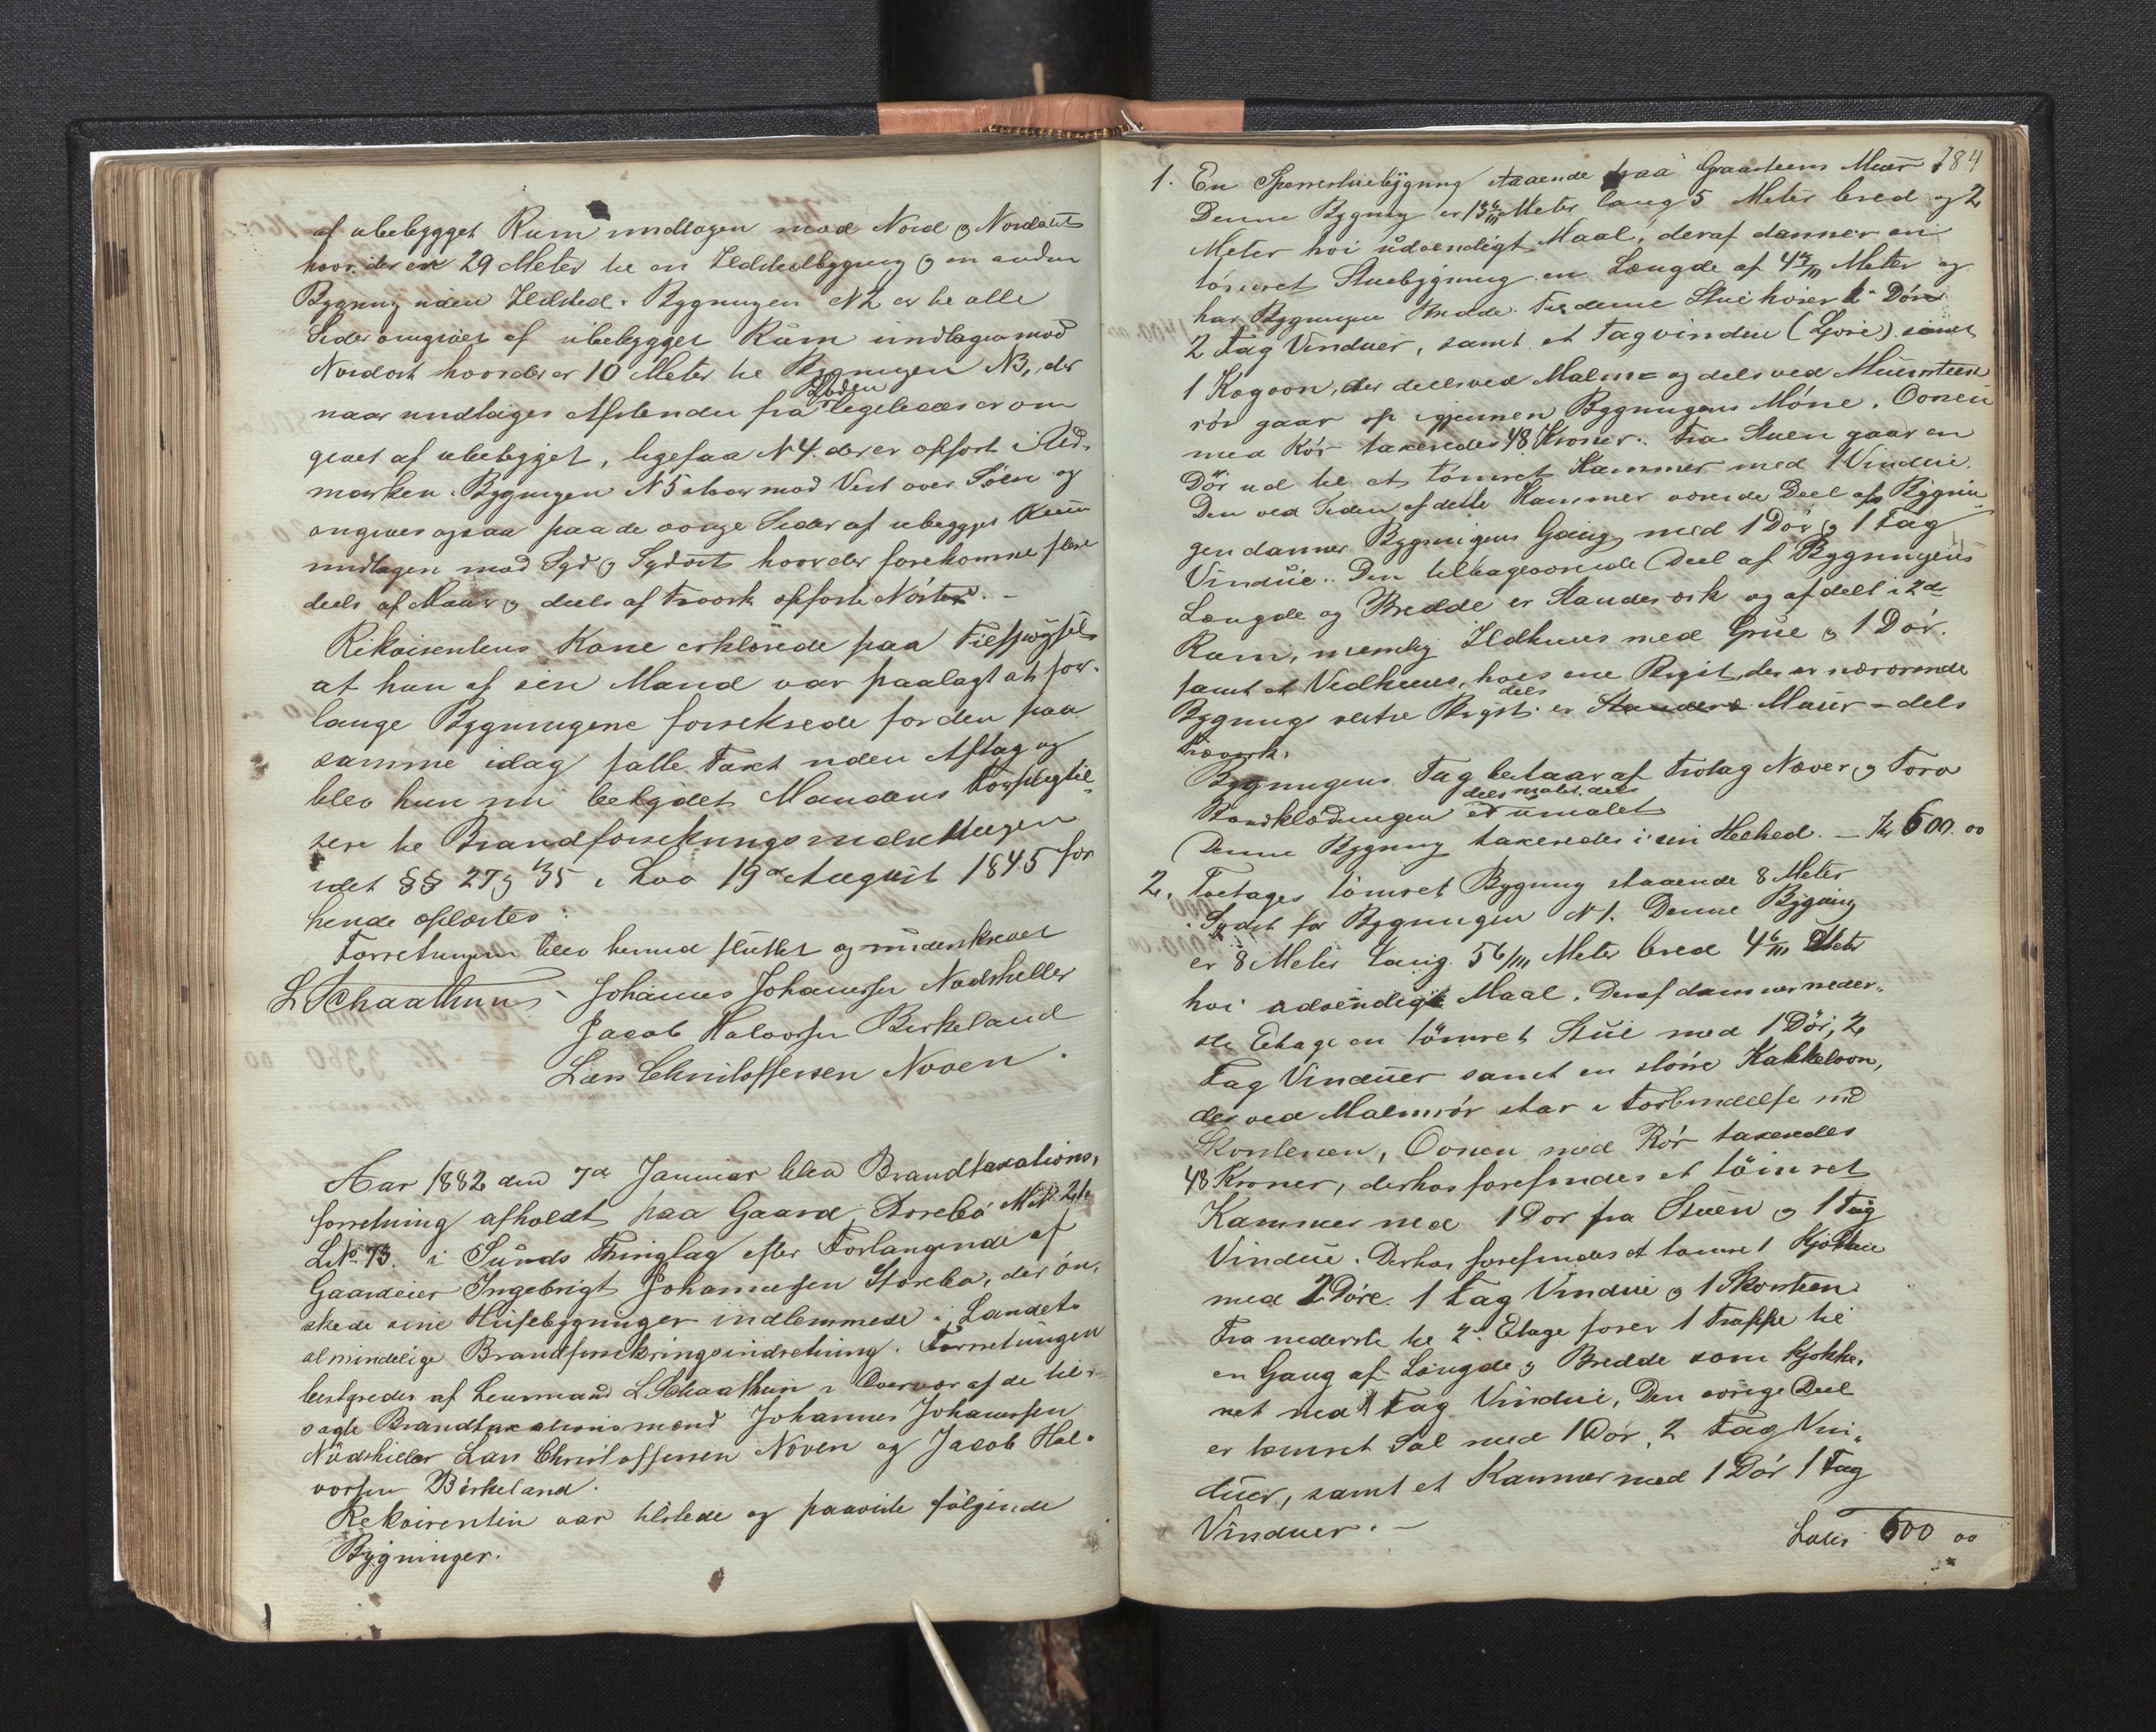 af ubebygget Rum undtagen mod Nord og Nordost
hvor der er 29 Meter til en Ildstedbygning og en anden
Bygning uden Ildsted. Bygningen N 2 er til alle
Sider omgivet af ubebygget Rum undtagen mod
Nordost hvor der er 10 Meter til Bygningen N 3, der
naar undtages Afstanden fra Laden ligeledes er om
givet af ubebygget, ligesaa N 4. der er opført i Ud-
marken. Bygningen N 5 staar mod Vest over Søen og
omgives ogsaa paa de øvrige Sider af ubebygget Rum
undtagen mod Syd og Sydost hvor der forekomme flere
deels af Muur og deels af Træværk opførte Nøster. -
Rekvirentens Kone erklærede paa Tilspørgsel
at hun af sin Mand var paalagt at for-
lange Bygningerne forsikrede for den paa
samme idag satte Taxt uden Aftag og
blev hun nu betydet Mandens Forpligtel-
ser til Brandforsikringsindretningen
idet §§ 27 og 35 i Lov 19de August 1845 for
hende oplæstes.
Forretningen blev hermed sluttet og underskrevet
L Schaathun - Johannes Johannessen Nødskiller
Jacob Halvorsen Birkeland
Lars Christoffersen Noven.
Aar 1882 den 7de Januar blev Brandtaxations,
forretning afholdt paa Gaard Storebø M No 21
L No 73. i Sunds Thinglag efter Forlangende af
Gaardeier Ingebrigt Johannessen Storebø, der øn,
skede sine Husebygninger indlemmede i Landets
almindelige Brandforsikringsindretning. Forretningen
bestyredes af Lensmand L Schaathun i Overvær af de til-
sagte Brandtaxationsmænd Johannes Johannessen
Nødskiller Lars Christoffersen Noven og Jacob Hal-
vorsen Birkeland.
Rekvirenten var tilstede og paaviste følgende
Bygninger.
184
1. En Sperrestuebygning staaende paa Graasteens Muur
Denne Bygning er 13 Meter lang 5 Meter bred og 2
Meter høi udvendigt Maal, deraf danner en
tømret Stuebygning en Længde af 4 Meter og
har Bygningens Bredde. Til denne Stue hører 2 Døre
2 Fag Vinduer, samt et Tagvindue (Ljore) samt
1 Kogeovn, der deels ved Malm= og dels ved Muursteen
rør gaar op igjennem Bygningens Møne. Ovnen
med Rør taxeredes 48 Kroner. Fra Stuen gaar en
Dør ud til et tømret Kammer med 1 Vindue.
Den ved Siden af dette Kammer værende Deel af Bygnin-
gen danner Bygningens Gang med 1 Dør og 1 Fag
Vindue. Den tilbageværende Deel af Bygningens
Længde og Bredde er Standerværk og afdelt i 2de
Rum, nemlig Ildhuus med Grue og 1 Dør.
samt et Vedhuus, hvis ene Bryst, der er nærværende
Bygnings vestre Bryst er deels Muur - dels
Træværk.
Bygningens Tag bestaar af Trotag Næver og Torv
Bordklædningen er deels malet deels umalet
Denne Bygning taxeredes i sin Heelhed. - Kr 600. 00
2. Toetages tømret Bygning staaende 8 Meter
i Sydost for Bygningen N 1. Denne Bygning
er 8 Meter lang. 5 6/10 Meter bred 4 6/10 Meter
høi udvendigt Maal. Deraf danner neder-
ste Etage en tømret Stue med 1 Dør, 2
Fag Vinduer samt en større Kakkelovn,
der ved Malmrør star i Forbindelse med
Skorstenen, Ovnen med Rør taxeredes
48 Kroner, derhos forefindes et tømret
Kammer med 1 Dør fra Stuen og 1 Fag
Vindue. Derhos forefindes et tømret Kjøkken
med 2 Døre. 1 Fag Vindue og 1 Skorsteen
Fra nederste til 2. Etage fører 1 Trappe til
en Gang af Længde og Bredde som Kjøkke-
net med 1 Fag Vindue, Den øvrige Deel
er tømret Sal med 1 Dør, 2 Fag Vin-
duer, samt et Kammer med 1 Dør 1 Fag
Vinduer. -
Latus 600 00